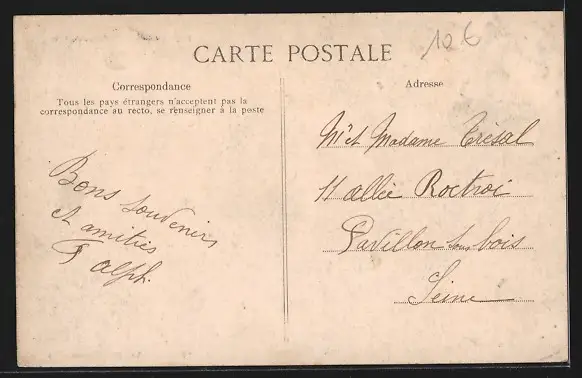 106
CARTE POSTALE
Correspondance
Tous les pays étrangers n'acceptent pas la
correspondance au recto, se renseigner à la poste
Bons souvenirs
et amitiés
Adresse
Mr et Madame Trésal
11 allée Roctroi
Pavillon sous bois
Seine